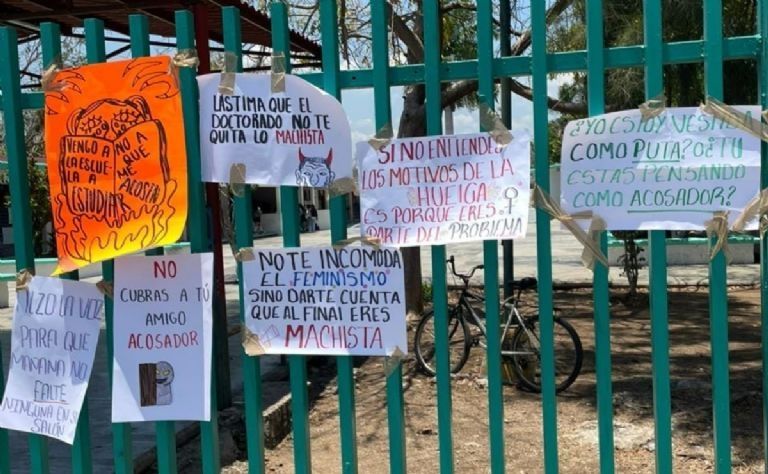 VENGO A
LA ESCUE
LA A
ESTUDIAR
NO A
QUE
ME
ACOSEN
LÁSTIMA QUE EL
DOCTORADO NO TE
QUITA LO MACHISTA
SI NO ENTIENDES
LOS MOTIVOS DE LA
HUELGA
ES PORQUE ERES
PARTE DEL PROBLEMA
¿YO ESTOY VESTIDA
COMO PUTA? O ¿TU
ESTAS PENSANDO
COMO ACOSADOR?
ALZO LA VOZ
PARA QUE
MAÑANA NO
FALTE
NINGUNA EN SU
SALÓN
NO
CUBRAS A TÚ
AMIGO
ACOSADOR
NO TE INCOMODA
EL FEMINISMO
SINO DARTE CUENTA
QUE AL FINAL ERES
MACHISTA